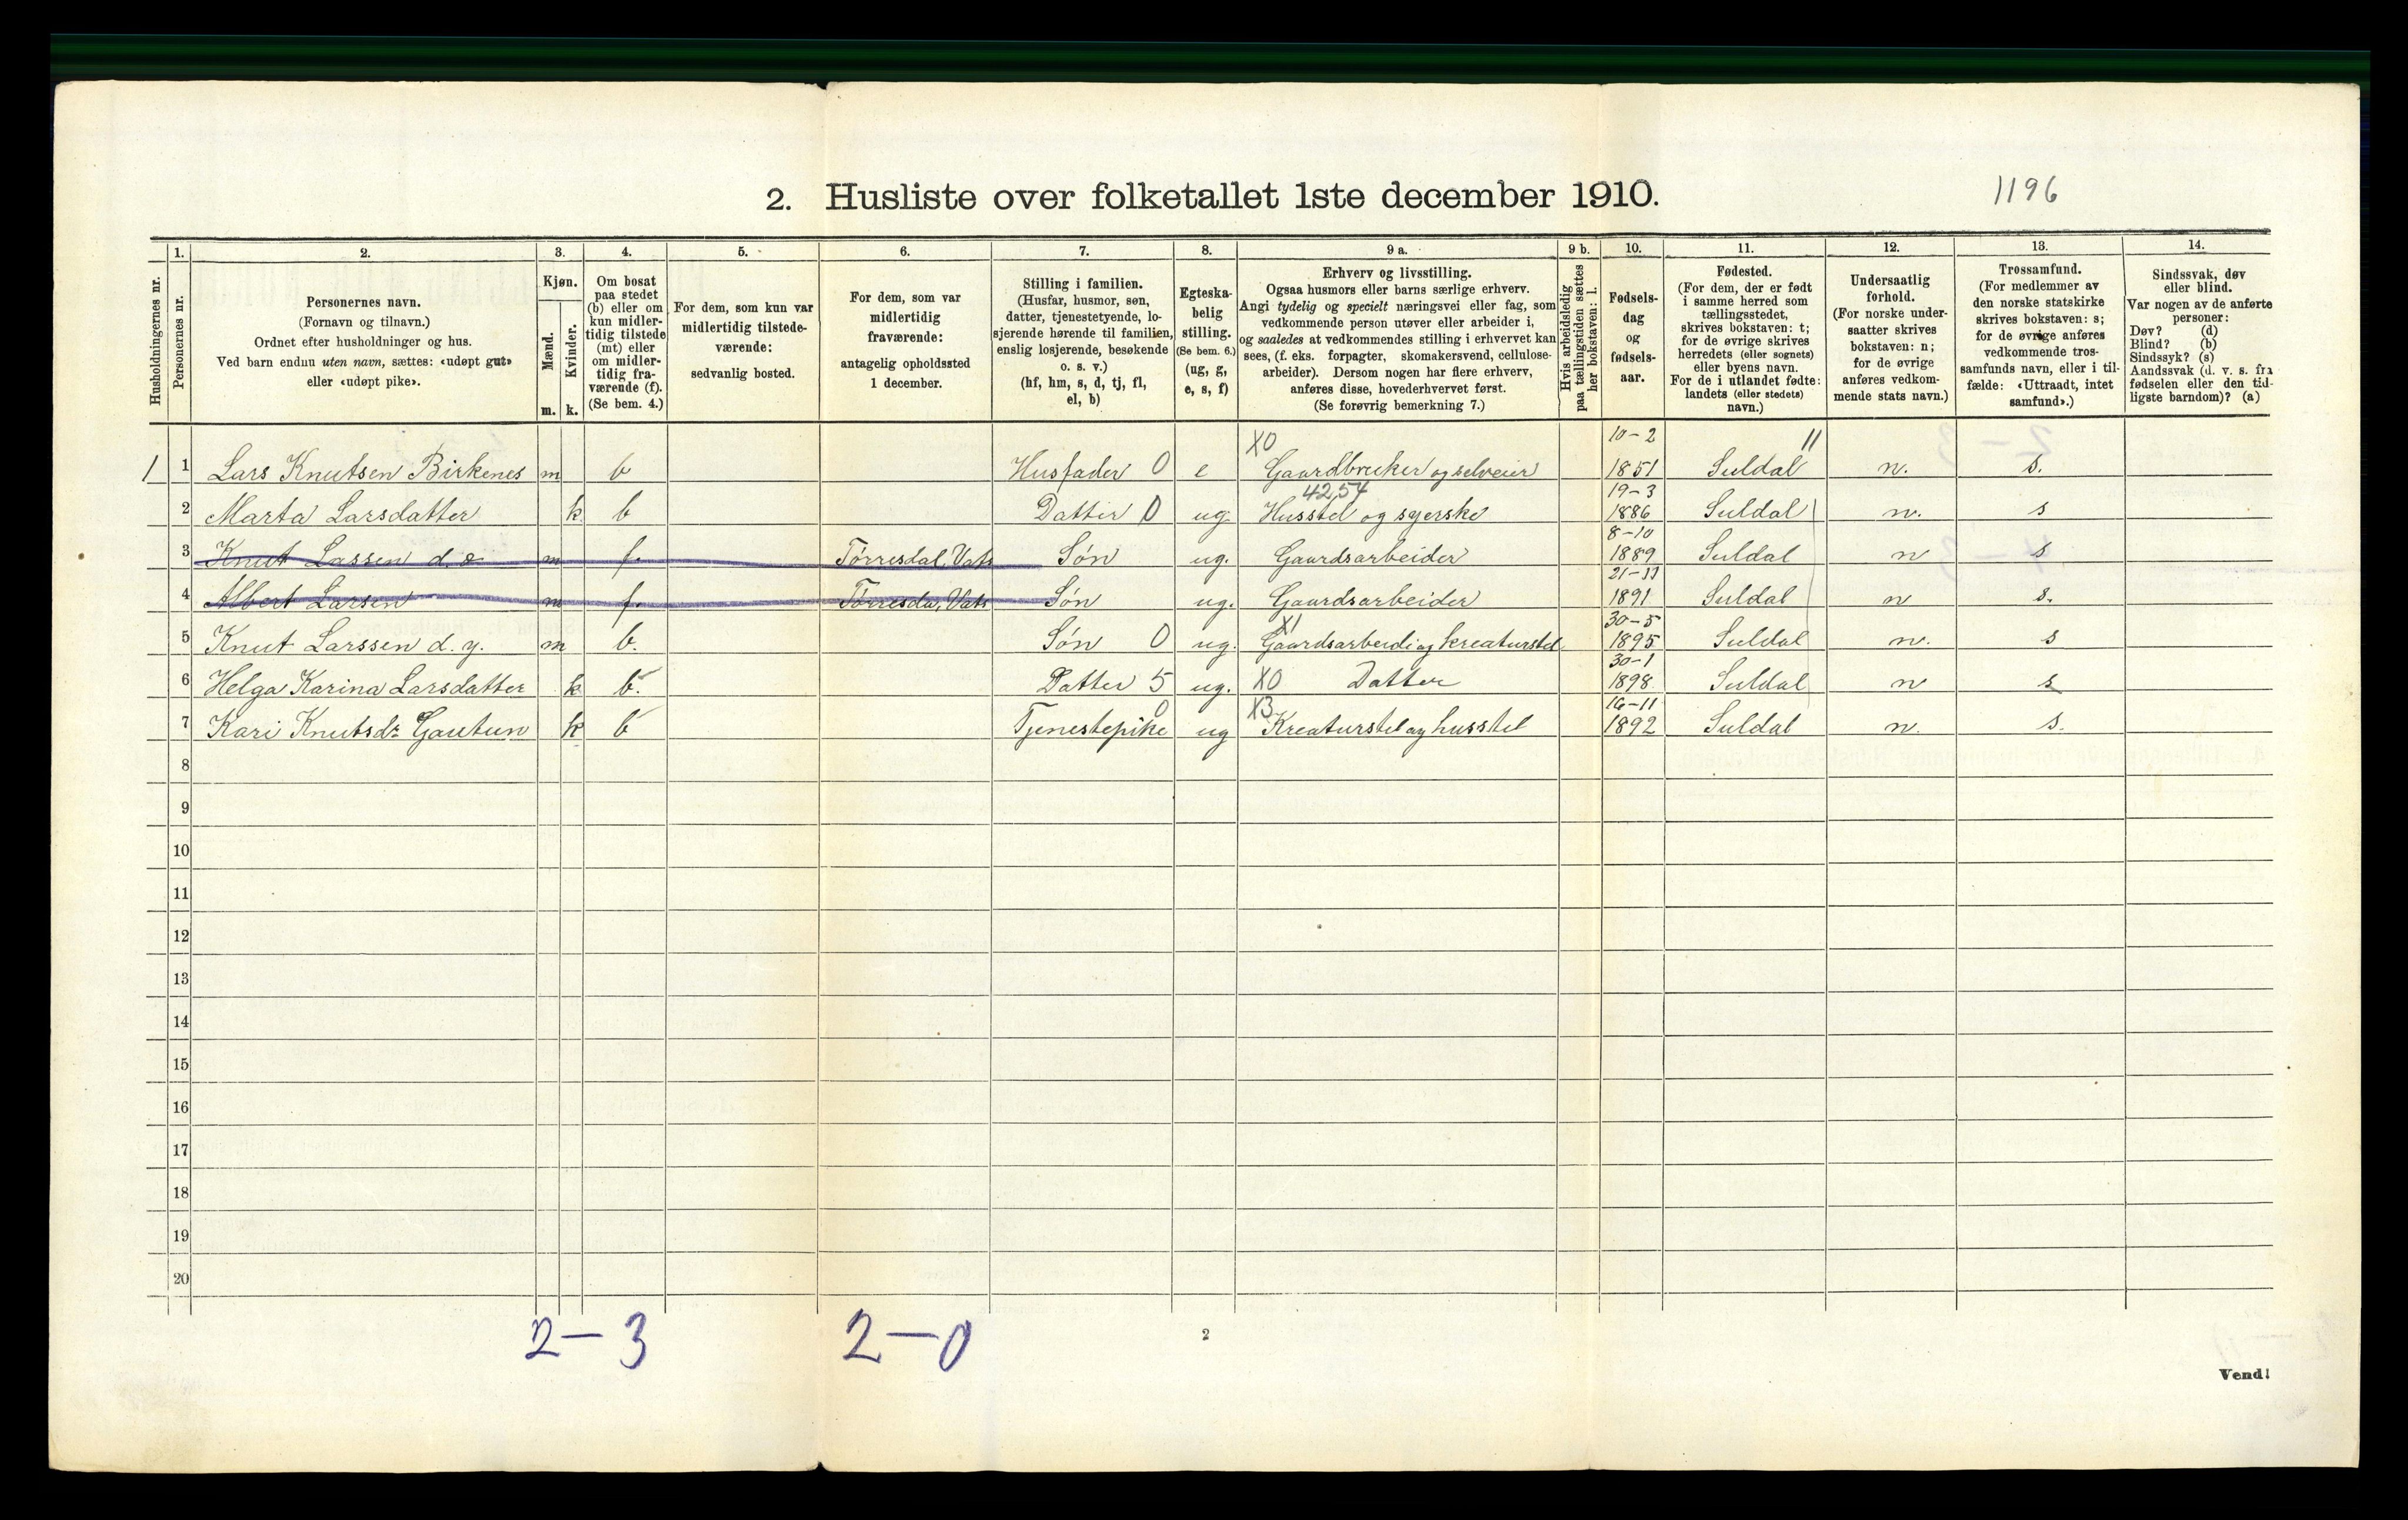 2. Husliste over folketallet 1ste december 1910.
1196
1.
2.
3.
4.
5.
6.
7.
8.
9 a.
9 b.
10.
11.
12.
13.
14.
Husholdningernes nr.
Personernes nr.
Personernes navn.
(Fornavn og tilnavn.)
Ordnet efter husholdninger og hus.
Ved barn endnu uten navn, sættes: «udøpt gut»
eller «udøpt pike».
Kjøn.
Mænd.
Kvinder.
m. k.
Om bosat
paa stedet
(b) eller om
kun midler-
tidig tilstede
(mt) eller
om midler-
tidig fra-
værende (f).
(Se bem. 4.)
For dem, som kun var
midlertidig tilstede-
værende:
sedvanlig bosted.
For dem, som var
midlertidig
fraværende:
antagelig opholdssted
1 december.
Stilling i familien.
(Husfar, husmor, søn,
datter, tjenestetyende, lo-
sjerende hørende til familien,
enslig losjerende, besøkende
o. s. v.)
(hf, hm, s, d, tj, fl,
el, b)
Egteska-
belig
stilling.
(Se bem. 6.)
(ug, g,
e, s, f)
Erhverv og livsstilling.
Ogsaa husmors eller barns særlige erhverv.
Angi tydelig og specielt næringsvei eller fag, som
vedkommende person utøver eller arbeider i,
og saaledes at vedkommendes stilling i erhvervet kan
sees, (f. eks. forpagter, skomakersvend, cellulose-
arbeider). Dersom nogen har flere erhverv,
anføres disse, hovederhvervet først.
(Se forøvrig bemerkning 7.)
Hvis arbeidsledig
paa tællingstiden sættes
her bokstaven: l.
Fødsels-
dag
og
fødsels-
aar.
Fødested.
(For dem, der er født
i samme herred som
tællingsstedet,
skrives bokstaven: t;
for de øvrige skrives
herredets (eller sognets)
eller byens navn.
For de i utlandet fødte:
landets (eller stedets)
navn.)
Undersaatlig
forhold.
(For norske under-
saatter skrives
bokstaven: n;
for de øvrige
anføres vedkom-
mende stats navn.)
Trossamfund.
(For medlemmer av
den norske statskirke
skrives bokstaven: s;
for de øvrige anføres
vedkommende tros-
samfunds navn, eller i til-
fælde: «Uttraadt, intet
samfund».)
Sindssvak, døv
eller blind.
Var nogen av de anførte
personer:
Døv? (d)
Blind? (b)
Sindssyk? (s)
Aandssvak (d. v. s. fra
fødselen eller den tid-
ligste barndom)? (a)
X0 10-2 11
1 1 Lars Knutsen Birkenes m b Husfader 0 e Gaardbruker og selveier 1851 Suldal n. s.
42,54 19-3
2 Marta Larsdatter k b Datter 0 ug. Husstel og syerske 1886 Suldal n. s
8-10
3 Knut Lassen d. e m f. Tørresdal, Vats Søn ug. Gaardsarbeider 1889 Suldal n s
21-11
4 Albert Larsen m f. Tørresda, Vats Søn ug. Gaardsarbeider 1891 Suldal n s.
X1 30-5
5 Knut Larssen d. y. m b. Søn 0 ug. Gaardsarbeid og kreaturstel 1895 Suldal n. s
30-1
6 Helga Karina Larsdatter k b. Datter 5 ug. X0 Datter 1898 Suldal n s
0 X3 16-11
7 Kari Knutsdr Gautun k b Tjenestepike ug Kreaturstel og husstel 1892 Suldal n. s.
8
9
10
11
12
13
14
15
16
17
18
19
20
2-3 2-0
2
Vend!